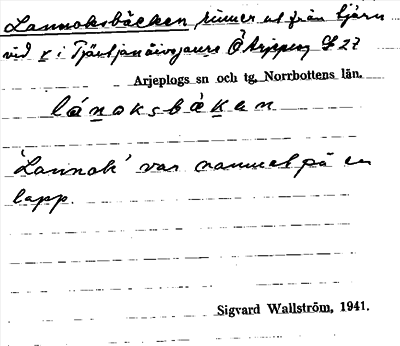 Lannoksbäcken rinner ut från tjärn
vid r i Tjärtjanåivejaure Ö Arjeplog
Arjeplogs sn och tg, Norrbottens län.
lánoksbäken
'Lannok' var namnet på en
lapp.
Sigvard Wallström, 1941.